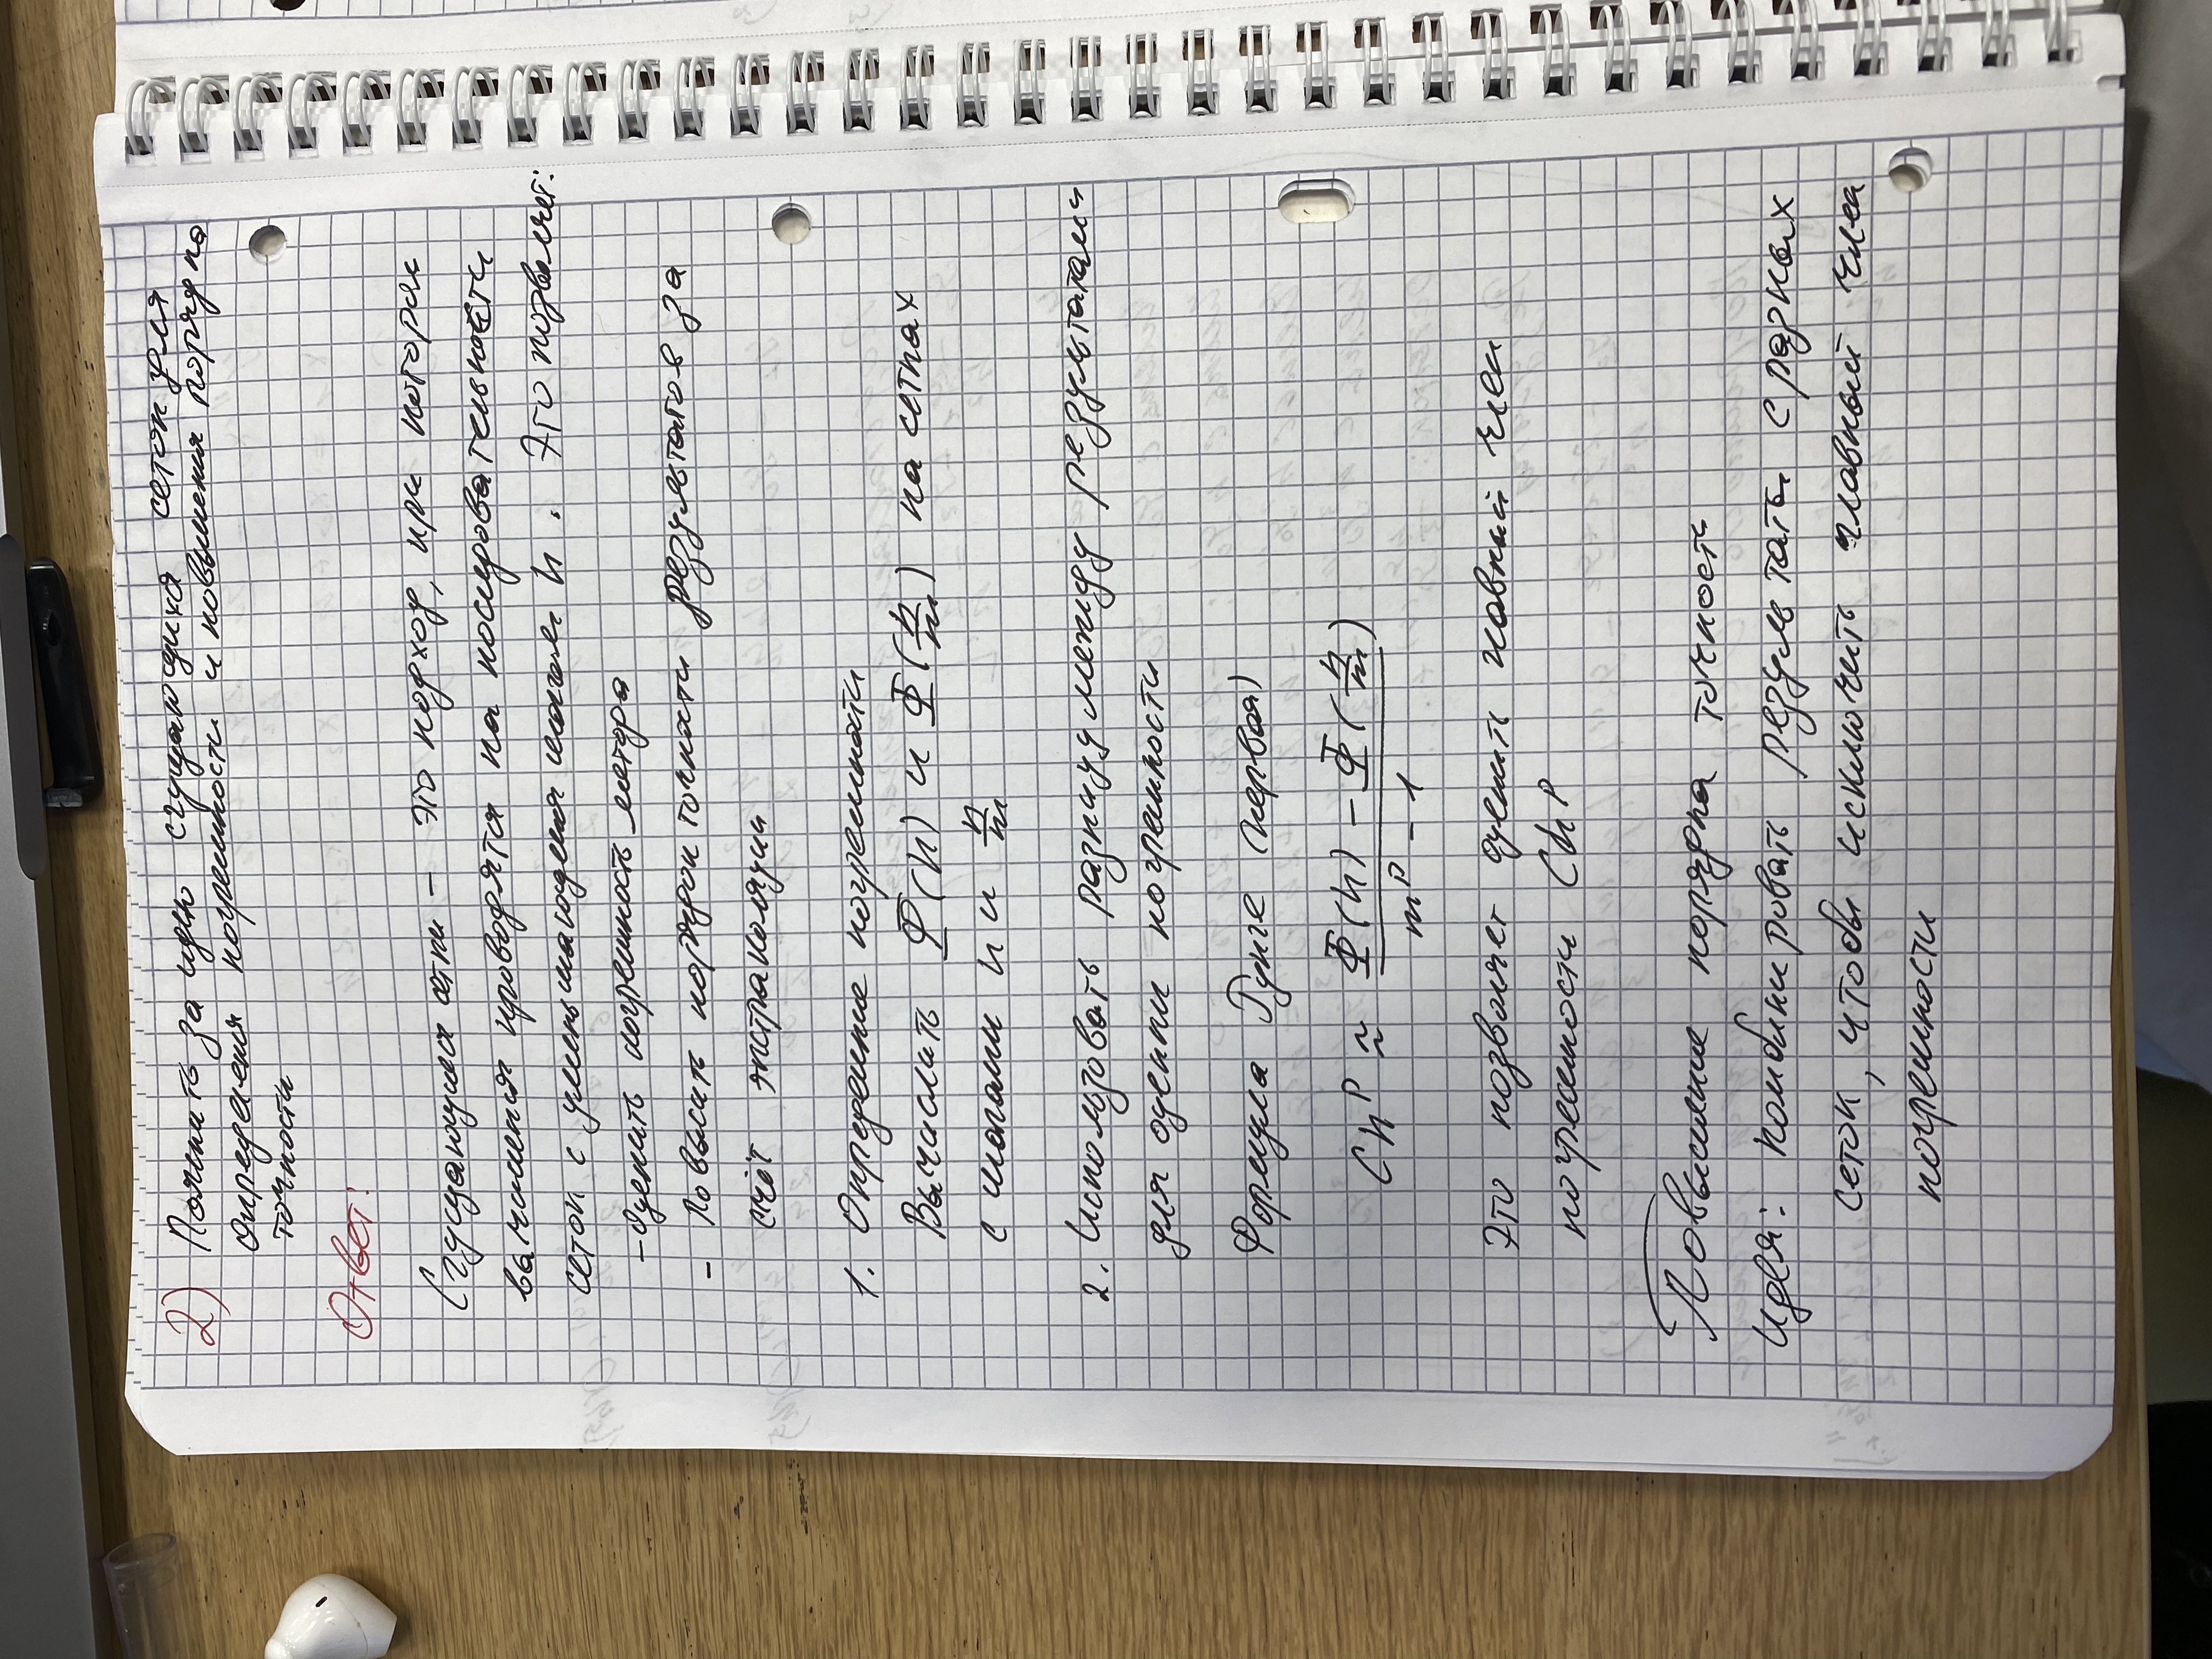 2) Пояснить за идею сгущающихся сеток для
определения погрешности и повышения порядка
точности
Ответ:
Сгущающиеся сетки – это подход, при котором
вычисления проводятся на последовательности
сеток с уменьшающимся шагом h. Это позволяет:
- Оценить погрешность метода
- Повысить порядок точности результатов за
счёт экстраполяции
1. Определение погрешности
Вычислить Φ(h) и Φ(h/m) на сетках
с шагами h и h/m
2. Использовать разницу между результатами
для оценки погрешности
Формула Рунге (первая)
Ch^p ≈ (Φ(h) – Φ(h/m)) / (m^p – 1)
Это позволяет оценить главный член
погрешности Ch^p
Повышение порядка точности
Идея: комбинировать результаты с разных
сеток, чтобы исключить главный член
погрешности